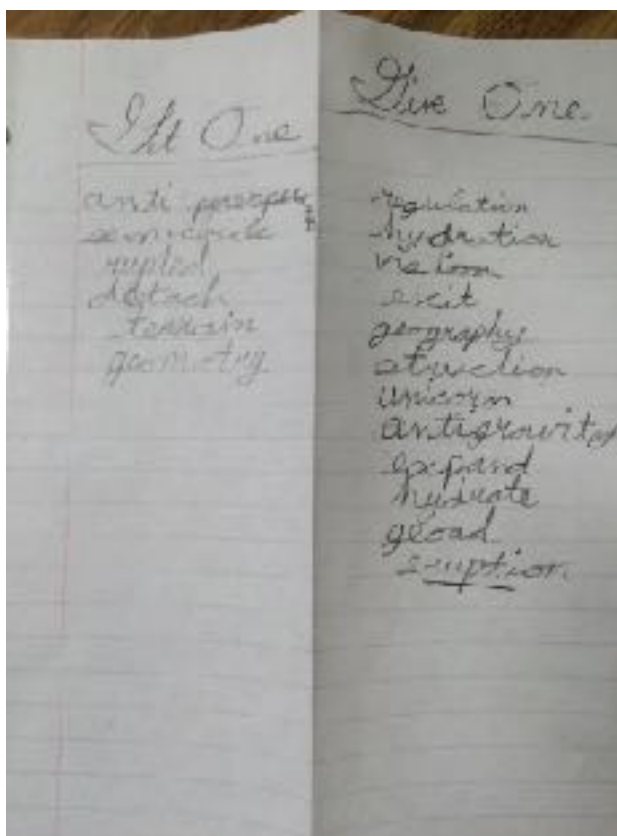 Get One
anti
semicircle
rupted
detach
terrain
geometry
Give One
regulation
hydration
vision
exit
geography
struction
unicorn
antigravity
expand
hydrate
geoad
eruption